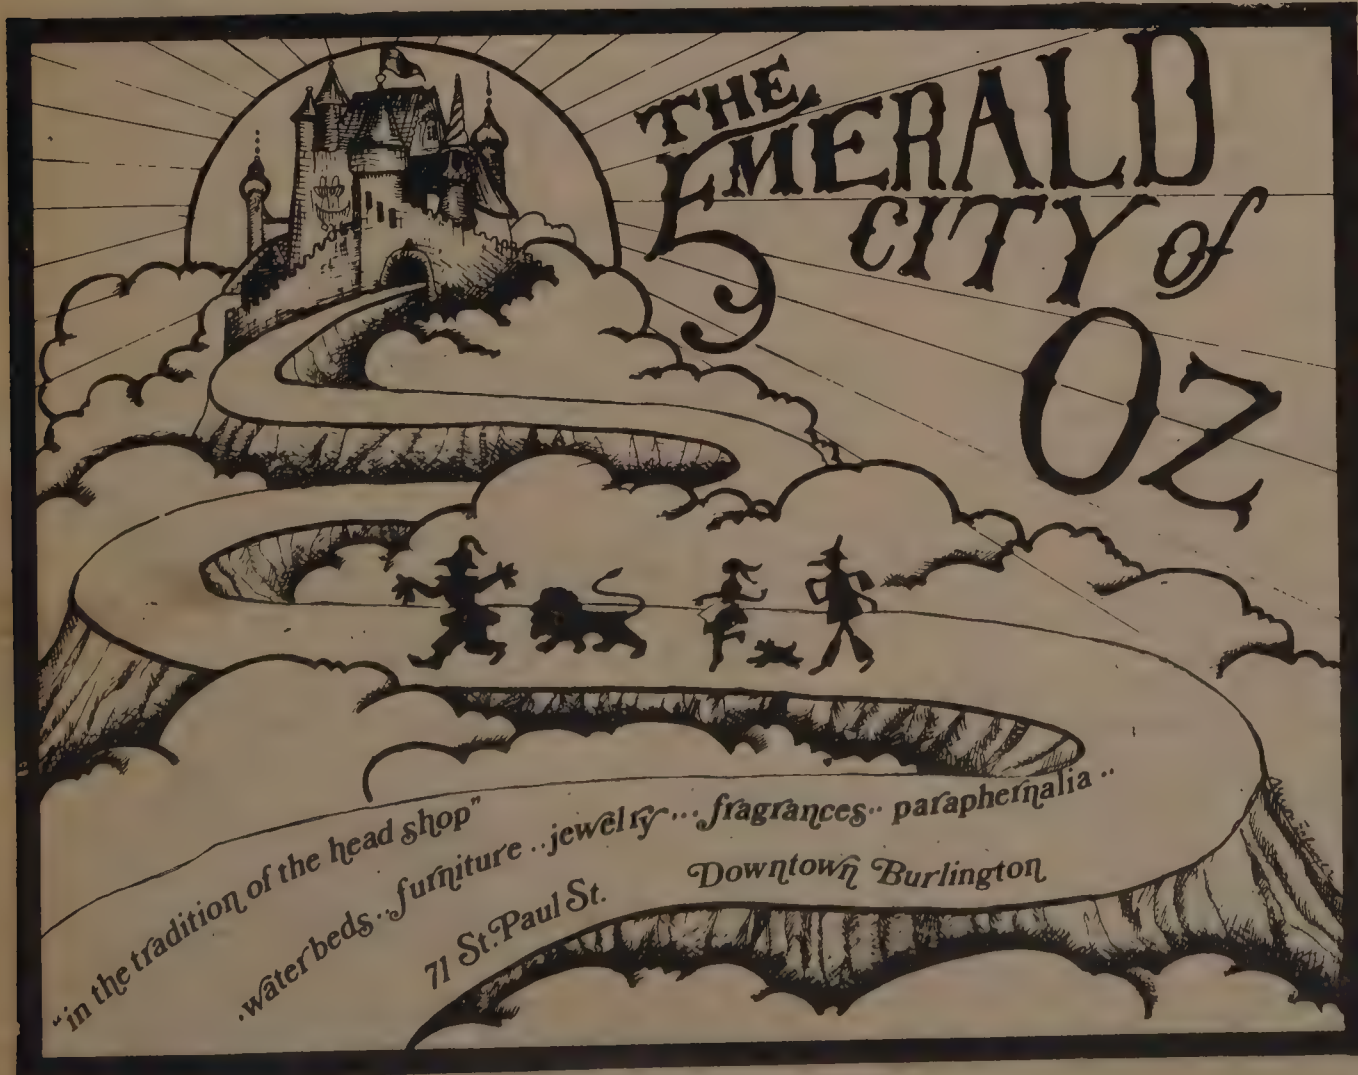 THE
EMERALD
CITY of
OZ
"in the tradition of the head shop"
.waterbeds..furniture..jewelry...fragrances..paraphernalia..
71 St. Paul St.
Downtown Burlington